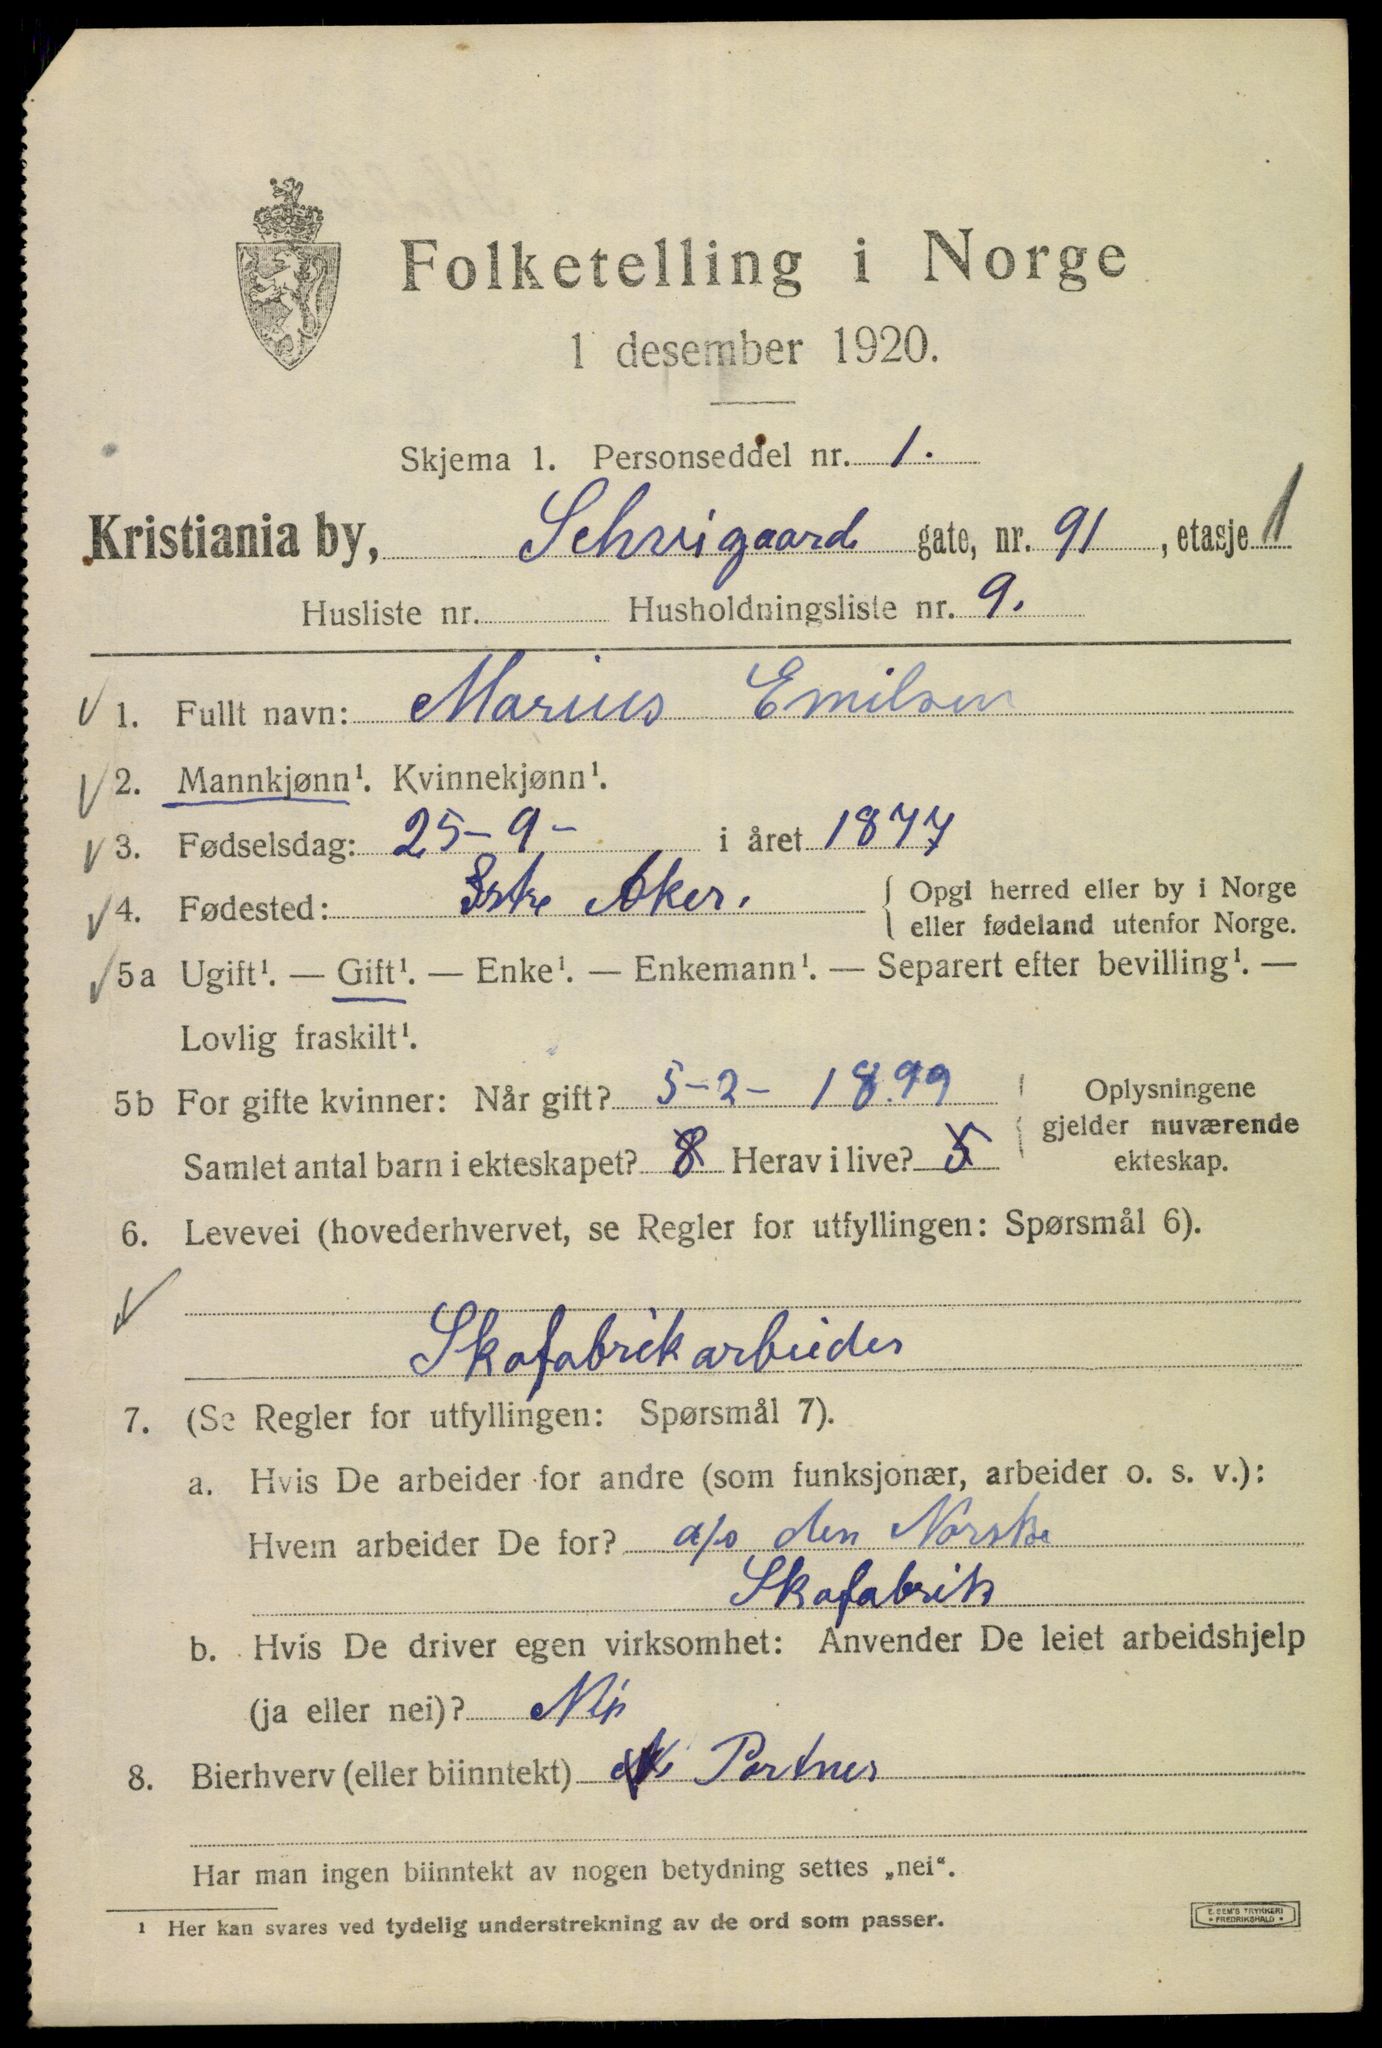 Folketelling i Norge
1 desember 1920.
Skjema 1. Personseddel nr. 1.
Kristiania by, Schvigaard gate, nr. 91, etasje 1
Husliste nr. Husholdningsliste nr. 9.
1. Fullt navn: Marius Emilsen
2. Mannkjønn¹. Kvinnekjønn¹.
3. Fødselsdag: 25-9- i året 1877
4. Fødested: Aker. { Opgi herred eller by i Norge
eller fødeland utenfor Norge.
5a Ugift¹. — Gift¹. — Enke¹. — Enkemann¹. — Separert efter bevilling¹. —
Lovlig fraskilt¹.
5b For gifte kvinner: Når gift? 5-2- 1899
Samlet antal barn i ekteskapet? 8 Herav i live? 5
Oplysningene
gjelder nuværende
ekteskap.
6. Levevei (hovederhvervet, se Regler for utfyllingen: Spørsmål 6).
Skofabrikarbeider
7. (Se Regler for utfyllingen: Spørsmål 7).
a. Hvis De arbeider for andre (som funksjonær, arbeider o. s. v.):
Hvem arbeider De for? a/s den Norske
Skofabrik
b. Hvis De driver egen virksomhet: Anvender De leiet arbeidshjelp
(ja eller nei)? Nei
8. Bierhverv (eller biinntekt) Portner
Har man ingen biinntekt av nogen betydning settes „nei“.
¹ Her kan svares ved tydelig understrekning av de ord som passer.
E. SEM'S TRYKKERI
• FREDRIKSHALD •